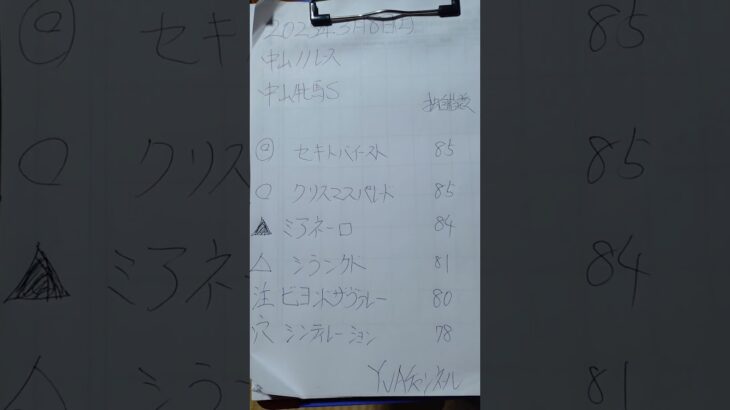 2025年3月8日(土)
中山11レース
中山牝馬S
指数
◎ セキトバイースト 85
○ クリスマスパレード 85
▲ ミアネーロ 84
△ シランケド 81
注 ビヨンドザヴァレー 80
穴 シンティレーション 78
YJAチャンネル